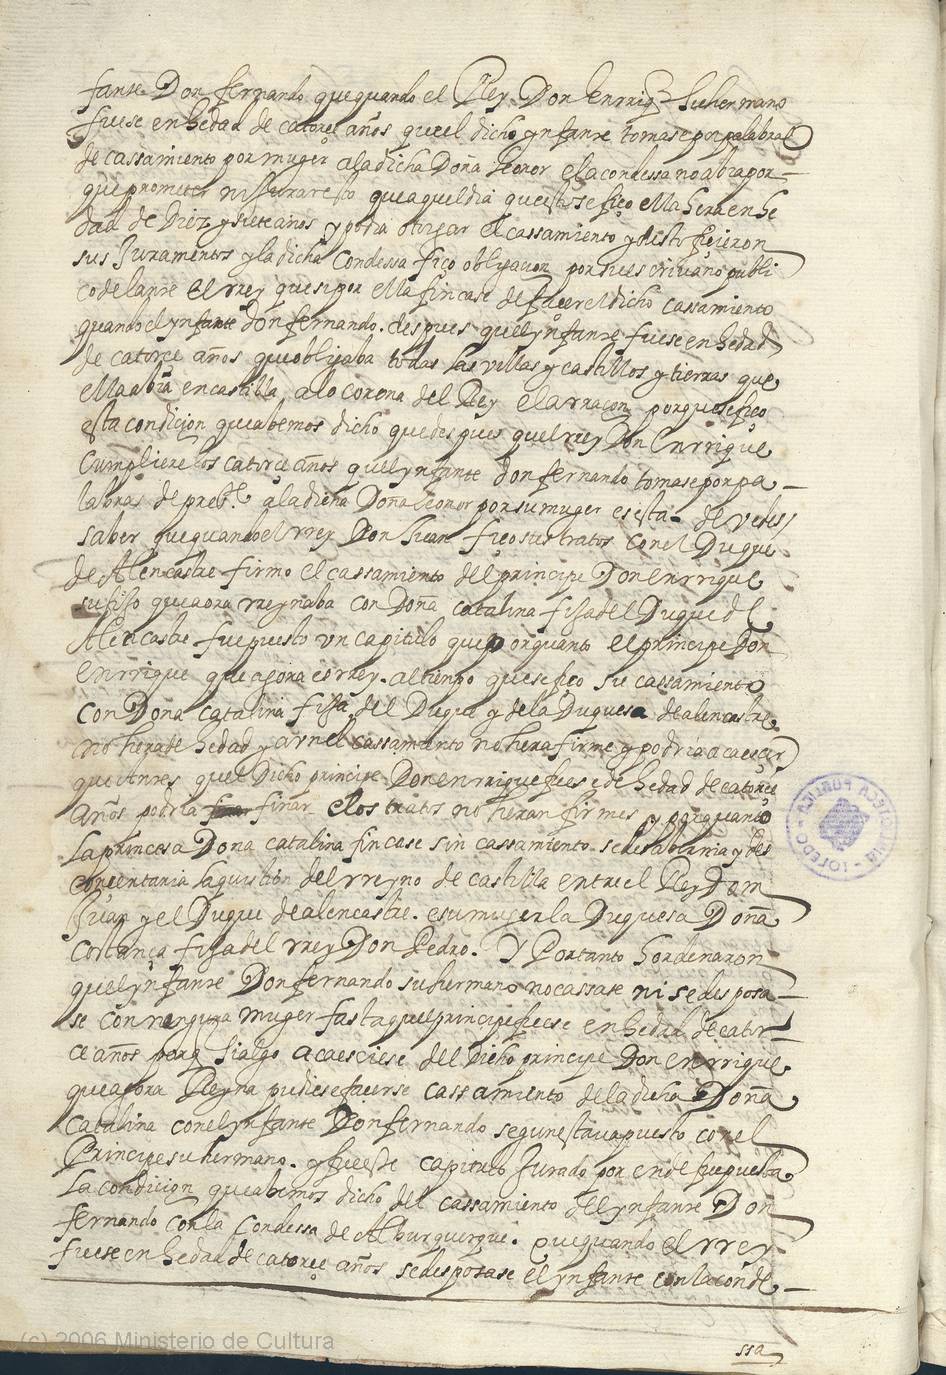 fante Don fernando que quando el Rey Don Enrriq̃ su hermano
fuese en hedad de catorçe años que el dicho ynfante tomase por palabras
de cassamiento por muger a la dicha Doña leonor e la condessa no abia por
que prometer ni jurar esto que aquel dia que esto se fiço ella hera en he
dad de Diez y siete años y podia otorgar el cassamiento y desto fiçieron
sus Juramentos y la dicha Condessa fiço obligaçion por su escrivano publi
co delante el rrey que si por ella fincase de façer el dicho cassamiento
quando el ynfante don fernando. despues quel ynfante fuese en hedad
de catorçe años que obligaba todas las villas y castillos y tierras que
ella abia en castilla a lo corona del Rey e la rraçon porque se fiço
esta condiçion que abemos dicho que despues quel rrey Don Enrrique
Cumpliere los catorçe años quel ynfante don fernando tomase por pa
labras de a la dicha Doña leonor por su muger es esta. de
saber que quando el rrey Don Juan fiço sus tratos con el Duque
de Alencastre firmo el cassamiento del prinçipe Don enrrique
su fijo que aora rreynaba con Doña catalina fija del Duque de
Alencastre fue puesto un capitulo que por quanto el prinçipe Don
enrrique que agora es rrey. al tienpo que se fiço su cassamiento
con Doña catalina fija del Duque y de la Duquesa de alencastre
no hera de hedad y cassamiento no hera firme y podria acaesçer
que antes quel Dicho prinçipe Don enrrique fuese de hedad de catorçe
años podria finar e los tratos no heran firmes y por quanto
la prinçesa Doña catalina fincase sin cassamiento y des
conçentaria la quistion del rreyno de castilla entre el Rey Don
Juan y el Duque de alencastre. e su muger la Duquesa Doña
Costança fija del rrey Don Pedro. Y Por tanto hordenaron
quel ynfante Don fernando su hermano no cassase ni se desposa
se con ninguna muger fasta quel prinçipe fuese en hedad de cator
çe años porq̃ si algo acaesçiese del dicho prinçipe Don enrrique
que agora Reyna pudiese façerse cassamiento de la dicha Doña
Catalina con el ynfante Don fernando segun estava puesto con el
Prinçipe su hermano. y fue este capitulo Jurado por ende fue puesta
La condiçion que abemos dicho del cassamiento del ynfante Don
fernando con la Condessa de Alburquerque. que quando el rrey
fuese en hedad de catorçe años se desposase el ynfante con la conde
ssa
BIBLIOTECA PUBLICA - TOLEDO
(c) 2006 Ministerio de Cultura